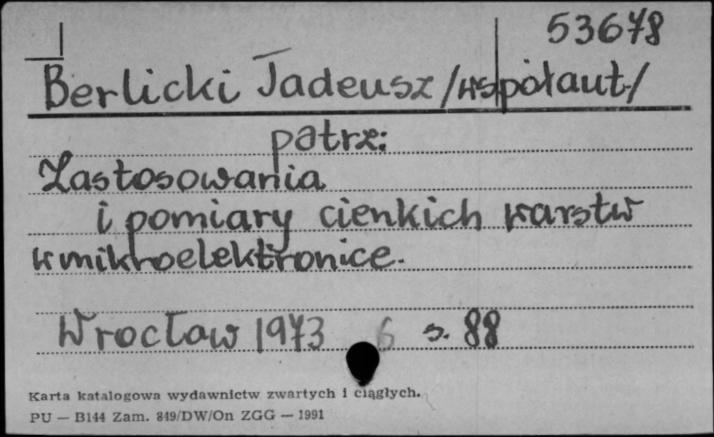 53678
Berlicki Tadeusz /współaut./
patrz:
Zastosowania
i pomiary cienkich warstw
w mikroelektronice.
Wrocław 1973 6 s. 88
Karta katalogowa wydawnictw zwartych i ciągłych.
PU — B144 Zam. 849/DW/On ZGG — 1991